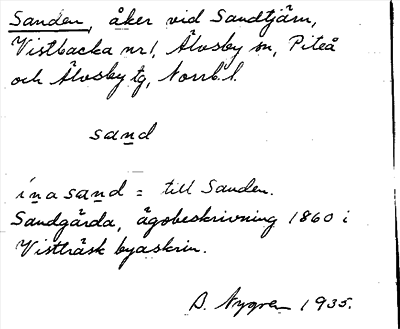 Sanden, åker vid Sandtjärn,
Vistbacka nr 1, Älvsby sn, Piteå
och Älvsby tg, Norrb. l.
sand
ína sand = till Sanden.
Sandgärda, ägobeskrivning 1860 i
Vistträsk byaskrin.
D. Nygren 1935.